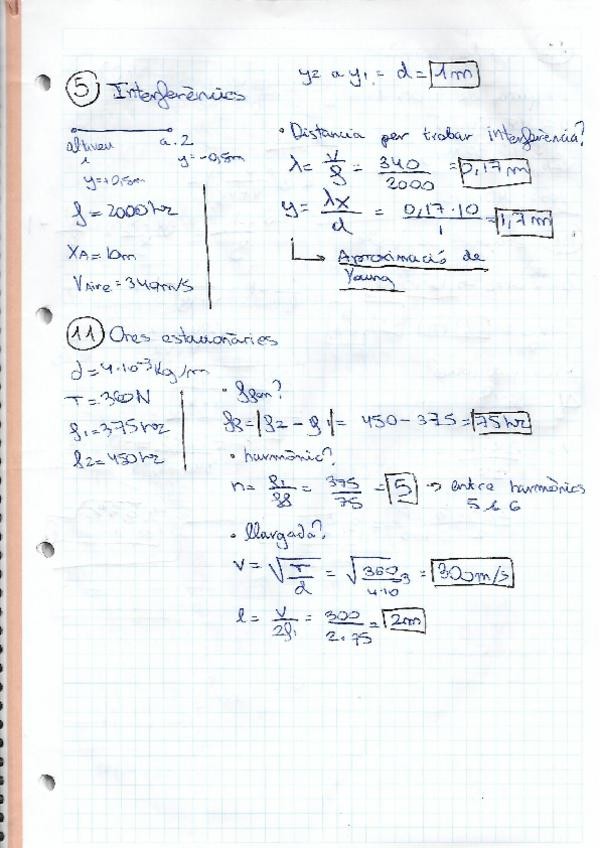 y2 a y1 = d = 1m
5 Interferències
altaveu 1 a. 2
y=+0,5m y=-0,5m
f = 2000hz
XA = 10m
VAire = 340m/s
• Distancia per trobar interferència?
λ = V/f = 340/2000 = 0,17m
y = λx/d = 0,17·10/1 = 1,7m
Aproximació de
Young
11 Ones estacionàries
d = 4·10⁻³ Kg/m
T = 360N
f1 = 375hz
f2 = 450hz
• ffon?
ff = |f2 - f1| = 450 - 375 = 75hz
• harmònic?
n = f1/ff = 375/75 = 5 → entre harmònics
5 i 6
• llargada?
V = √T/d = √360/4·10⁻³ = 300m/s
l = V/2f1 = 300/2·75 = 2m